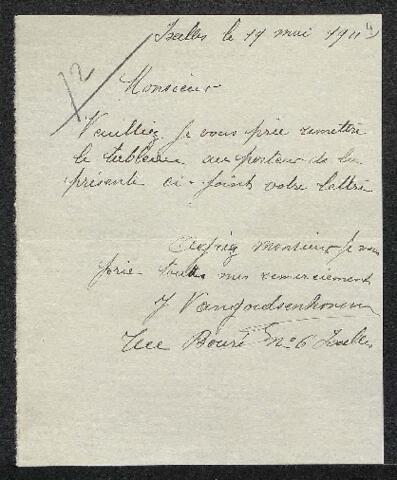 Ixelles le 19 mai 1911
4
12
Monsieur
Veuilliez je vous prie remettre
le tableau au porteur de la
présente ci-joint votre lettre
monsieur je vous
prie toutes mes remerciements
J Vangoidsenhoven
Rue Bouré No 6 Ixelles